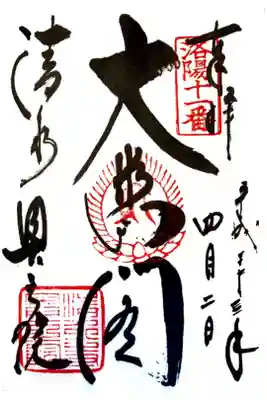 奉拝
洛陽十一番
平成二十三年
四月二日
大悲閣
清水
奥之院